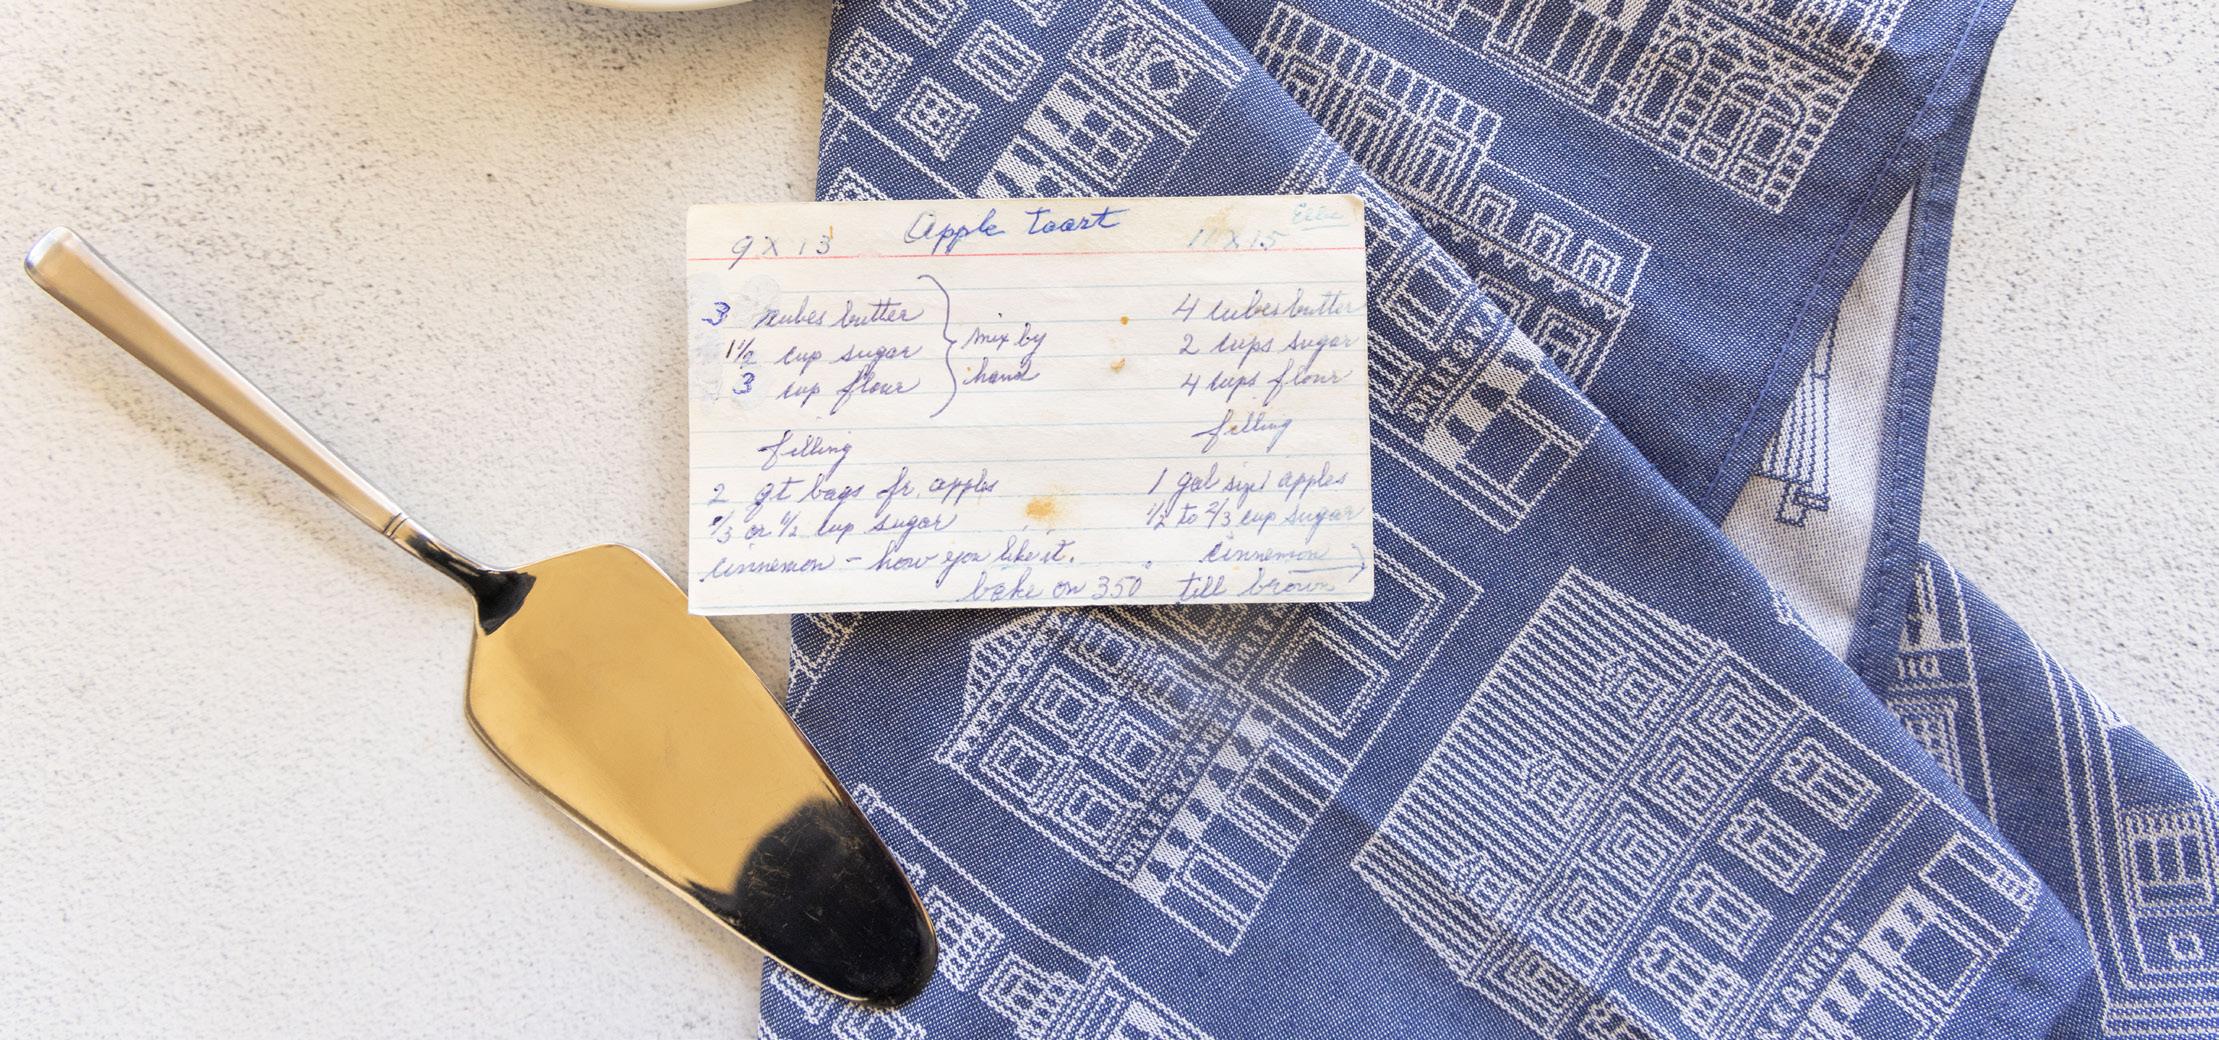 Apple Toart
9 X 13
11 X 15
3 cubes butter
1 1/2 cup sugar
3 cup flour
mix by
hand
filling
2 qt bags fr. apples
1/3 or 1/2 cup sugar
cinnemon - how you like it.
4 cubes butter
2 cups sugar
4 cups flour
filling
1 gal size apples
1/2 to 2/3 cup sugar
cinnemon
bake on 350 till brown